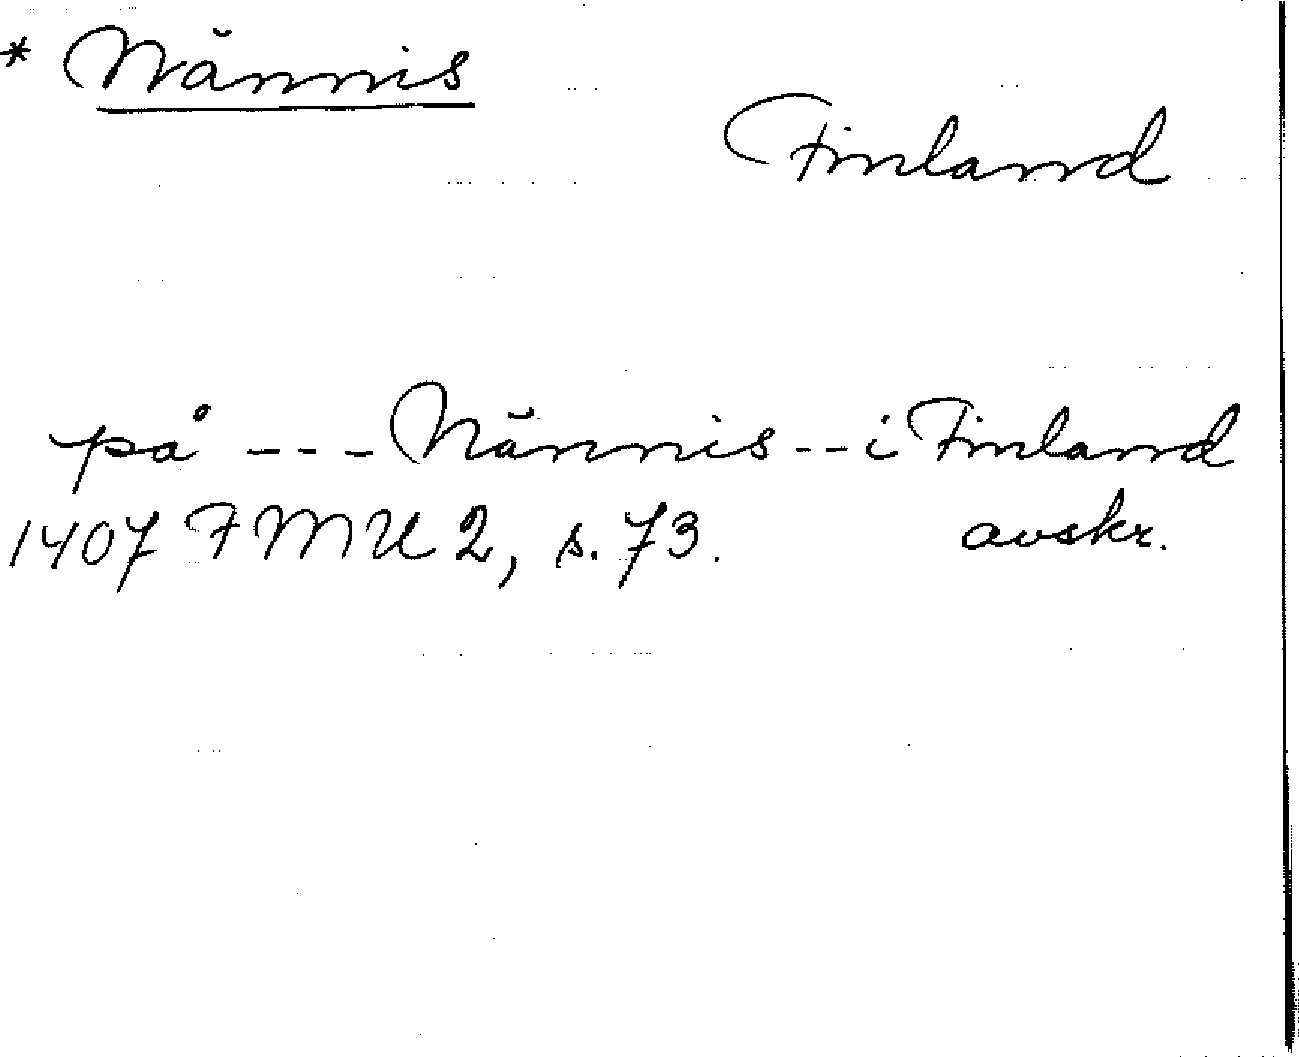 * Nännis
Finland
på --- Nännis -- i Finland
1407 FMU 2, s. 73. avskr.